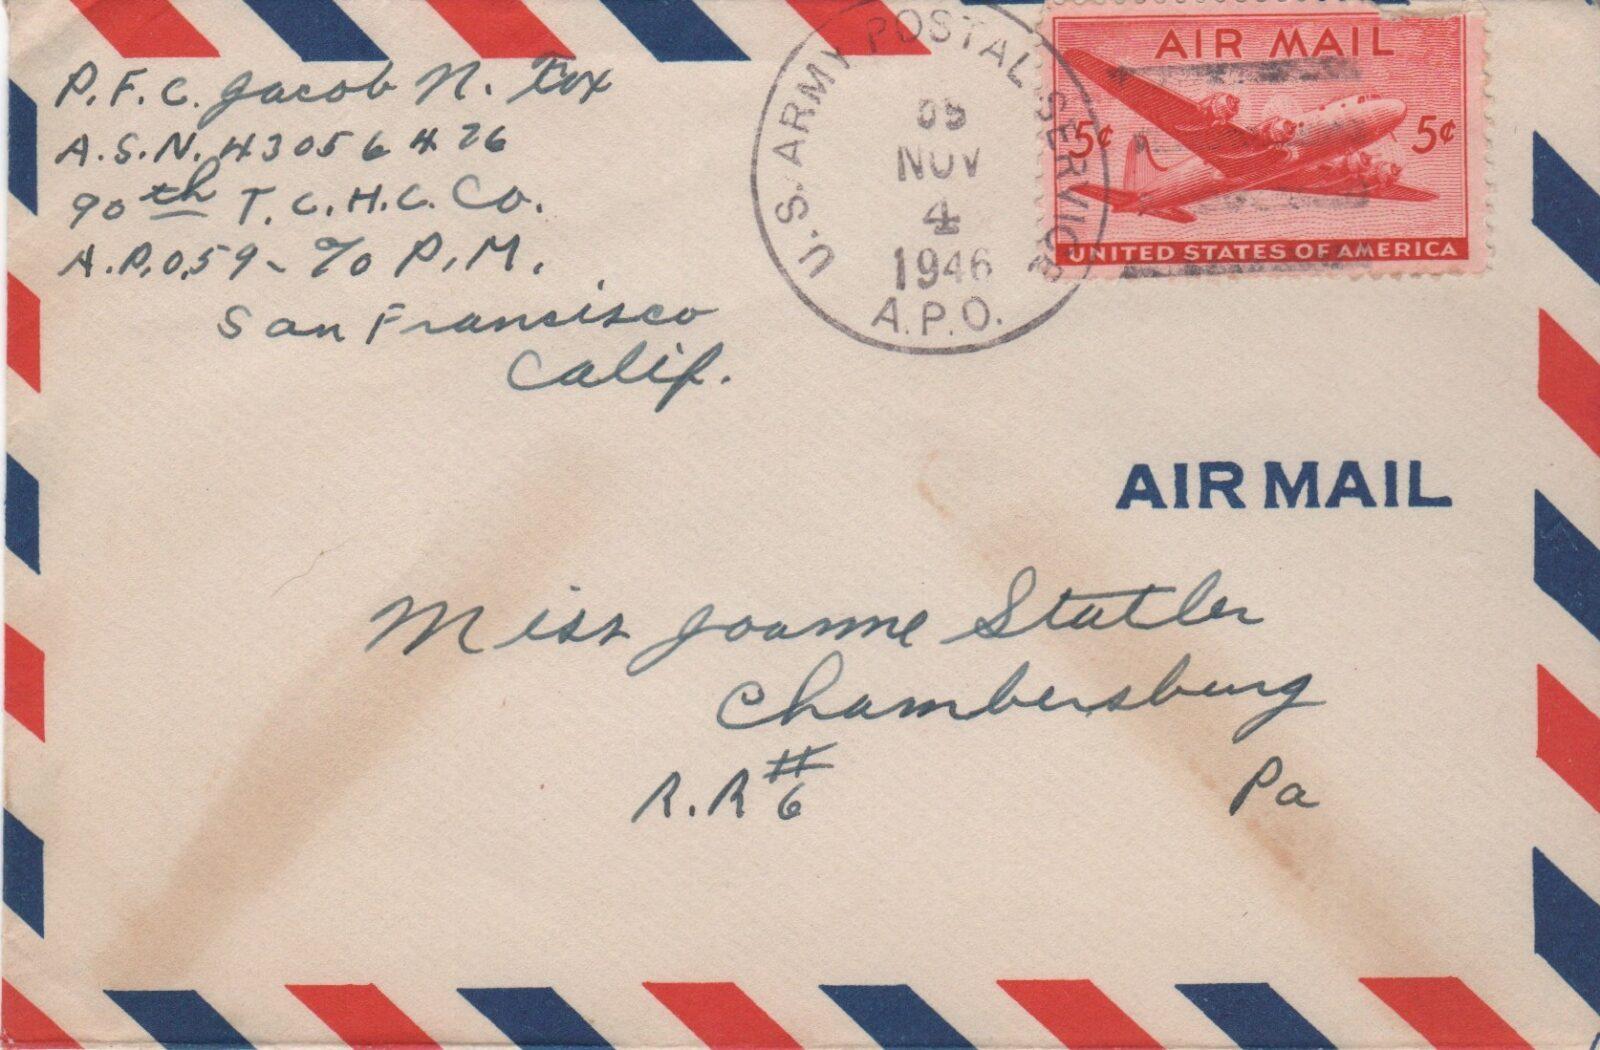 P.F.C. Jacob N. Fox
A.S.N. 43056426
90th T.C.H.C. Co.
A.P.O. 59 - % P.M.
San Francisco
Calif.
U.S. ARMY POSTAL SERVICE
05
NOV
4
1946
A.P.O.
AIR MAIL
5¢ 5¢
UNITED STATES OF AMERICA
AIR MAIL
Miss Joanne Statler
Chambersburg
R.R #6 Pa